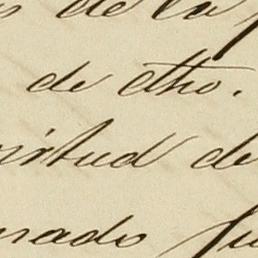 de la
de dho.
virtud de
nado Ju